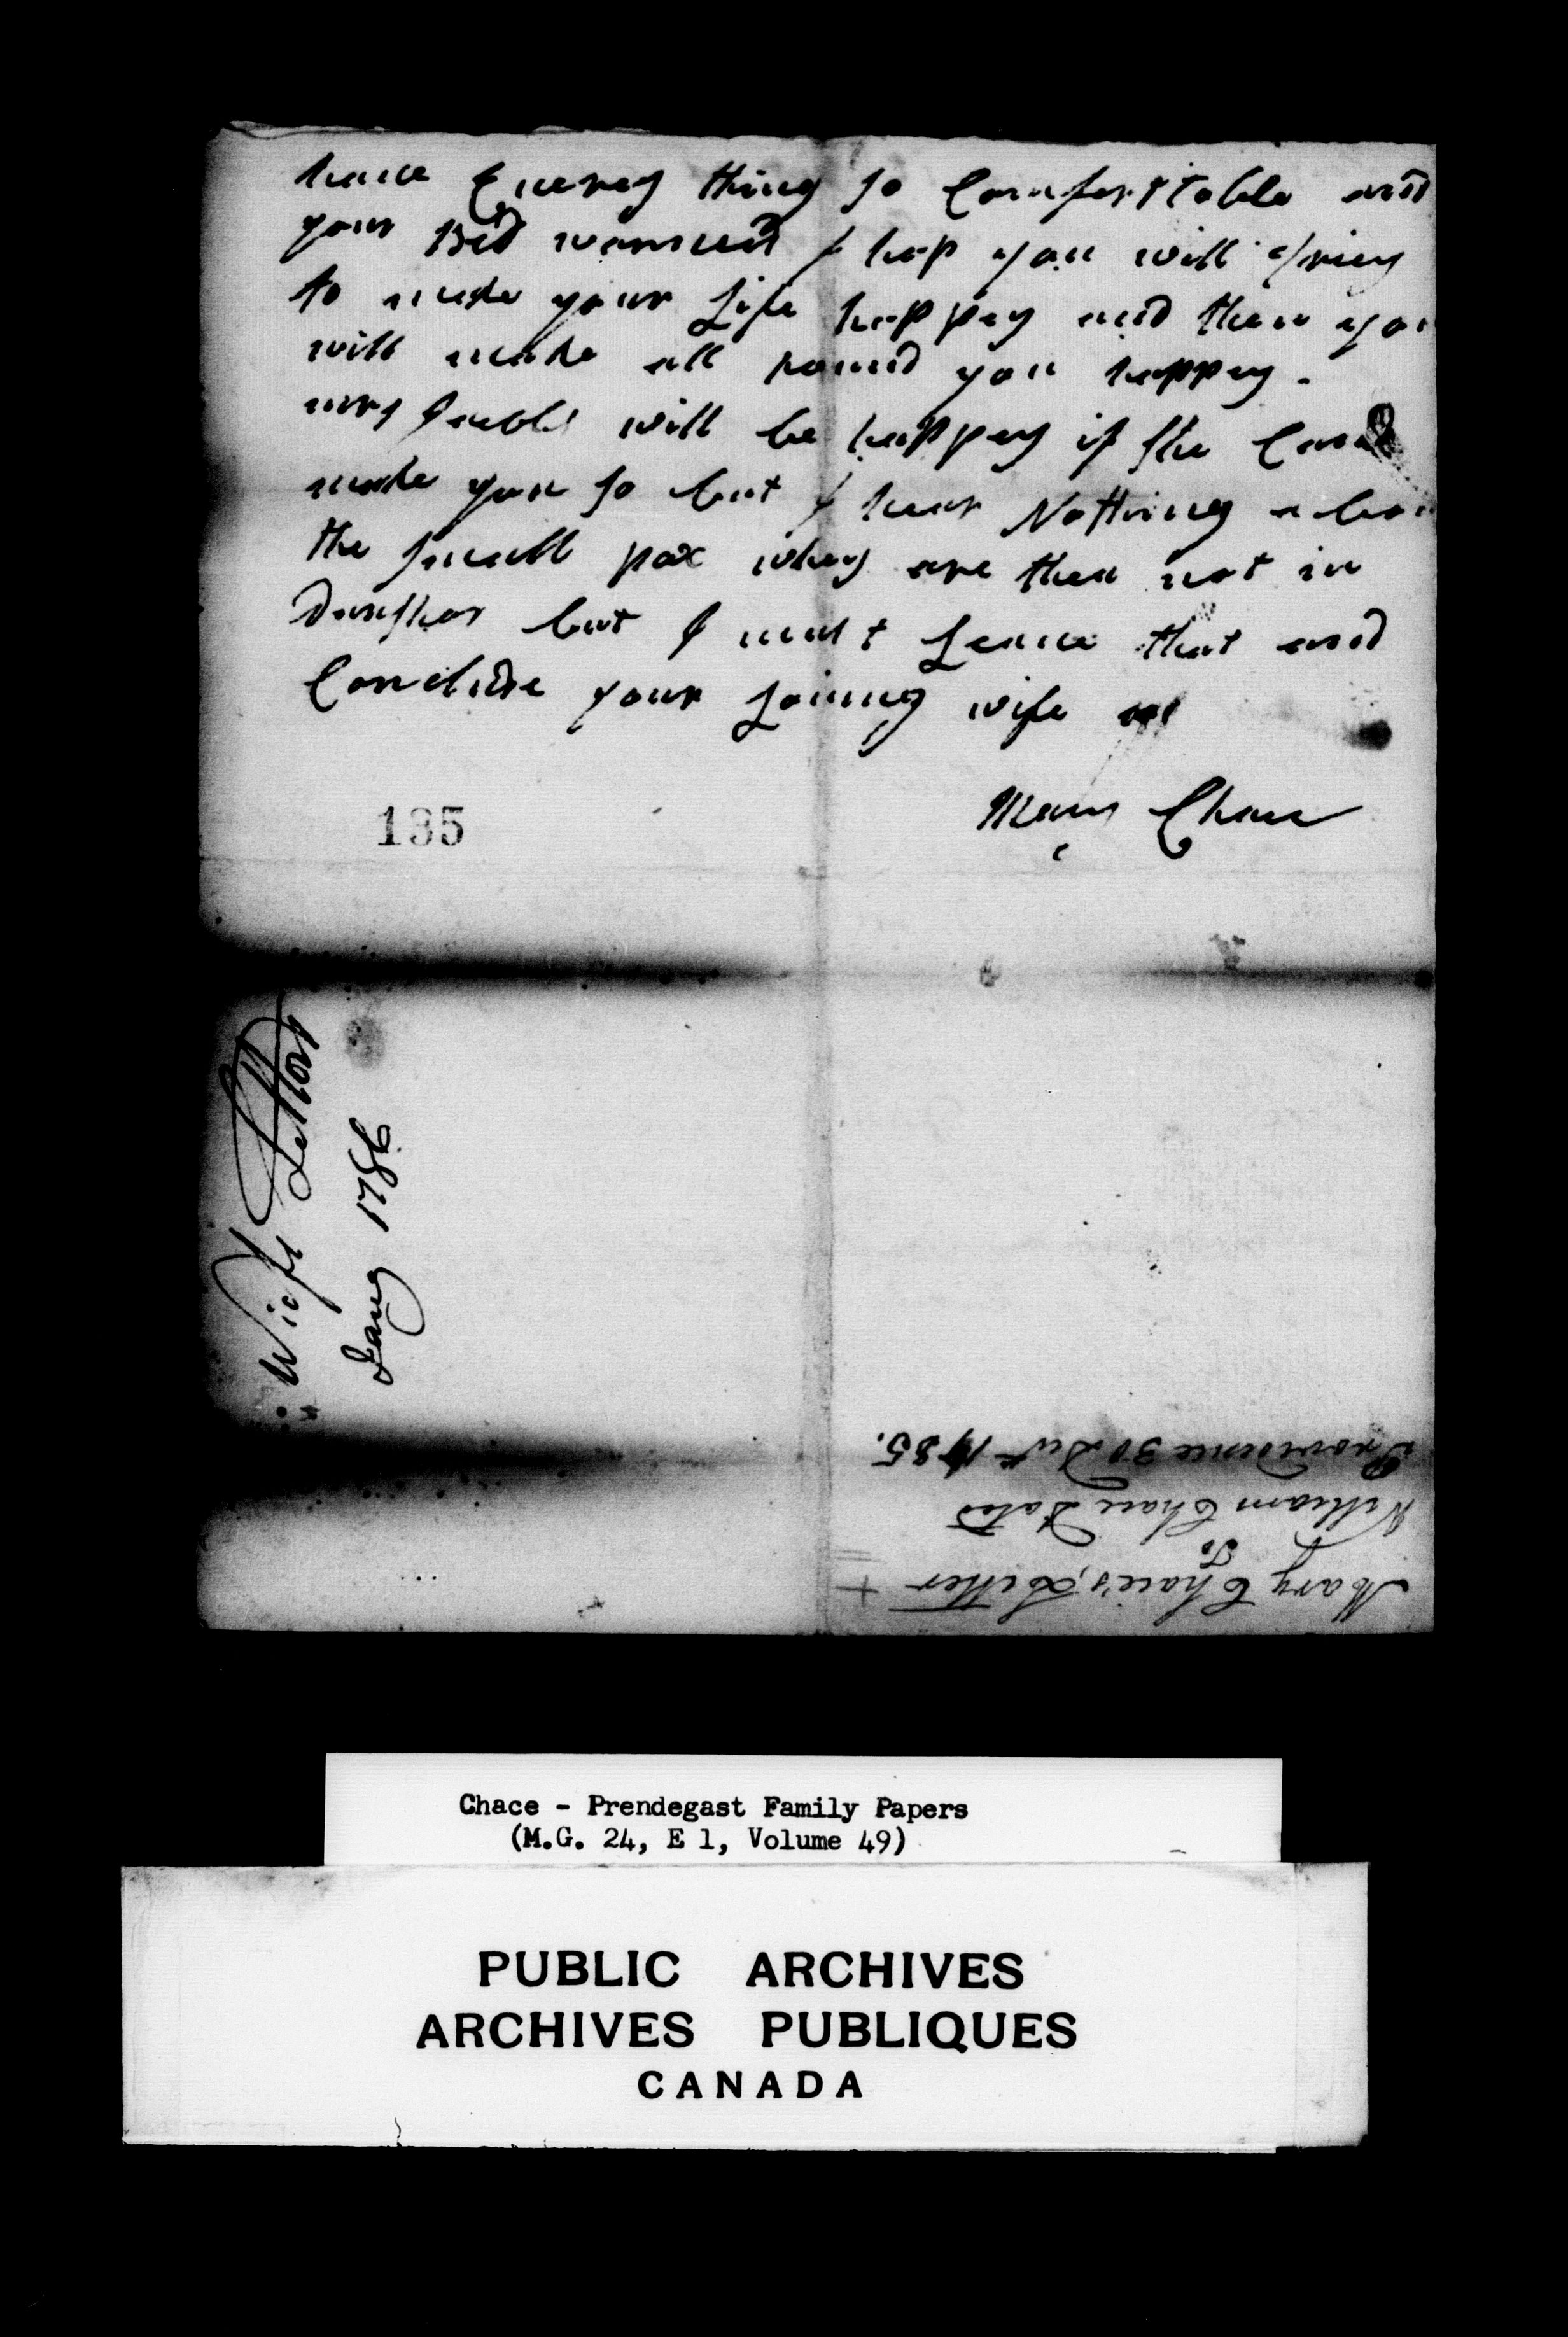 have Everey thing so Comforttable and
your Bed warmed I hop you will Striey
to make your Life happey and then you
will make all round you happey.
mrs will be happey if she Can
make you so but I hear Notthing abou
the small pox whey are thea not in
but I must Leave that and
Conclude your Loving wife
Mary Chace
135
Wife Letter
Jany 1786
Mary Chace's Letter
To
William Chace Dated
Providence 30 Decr 1785.
Chace - Prendegast Family Papers
(M.G. 24, E 1, Volume 49)
PUBLIC ARCHIVES
ARCHIVES PUBLIQUES
CANADA